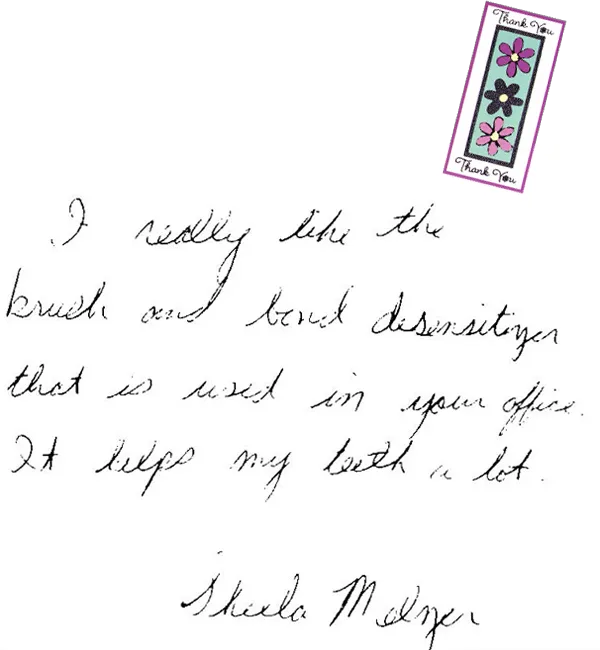 Thank You
Thank You
I really like the
brush and bond desensitizer
that is used in your office.
It helps my teeth a lot.
Sheila Melzer